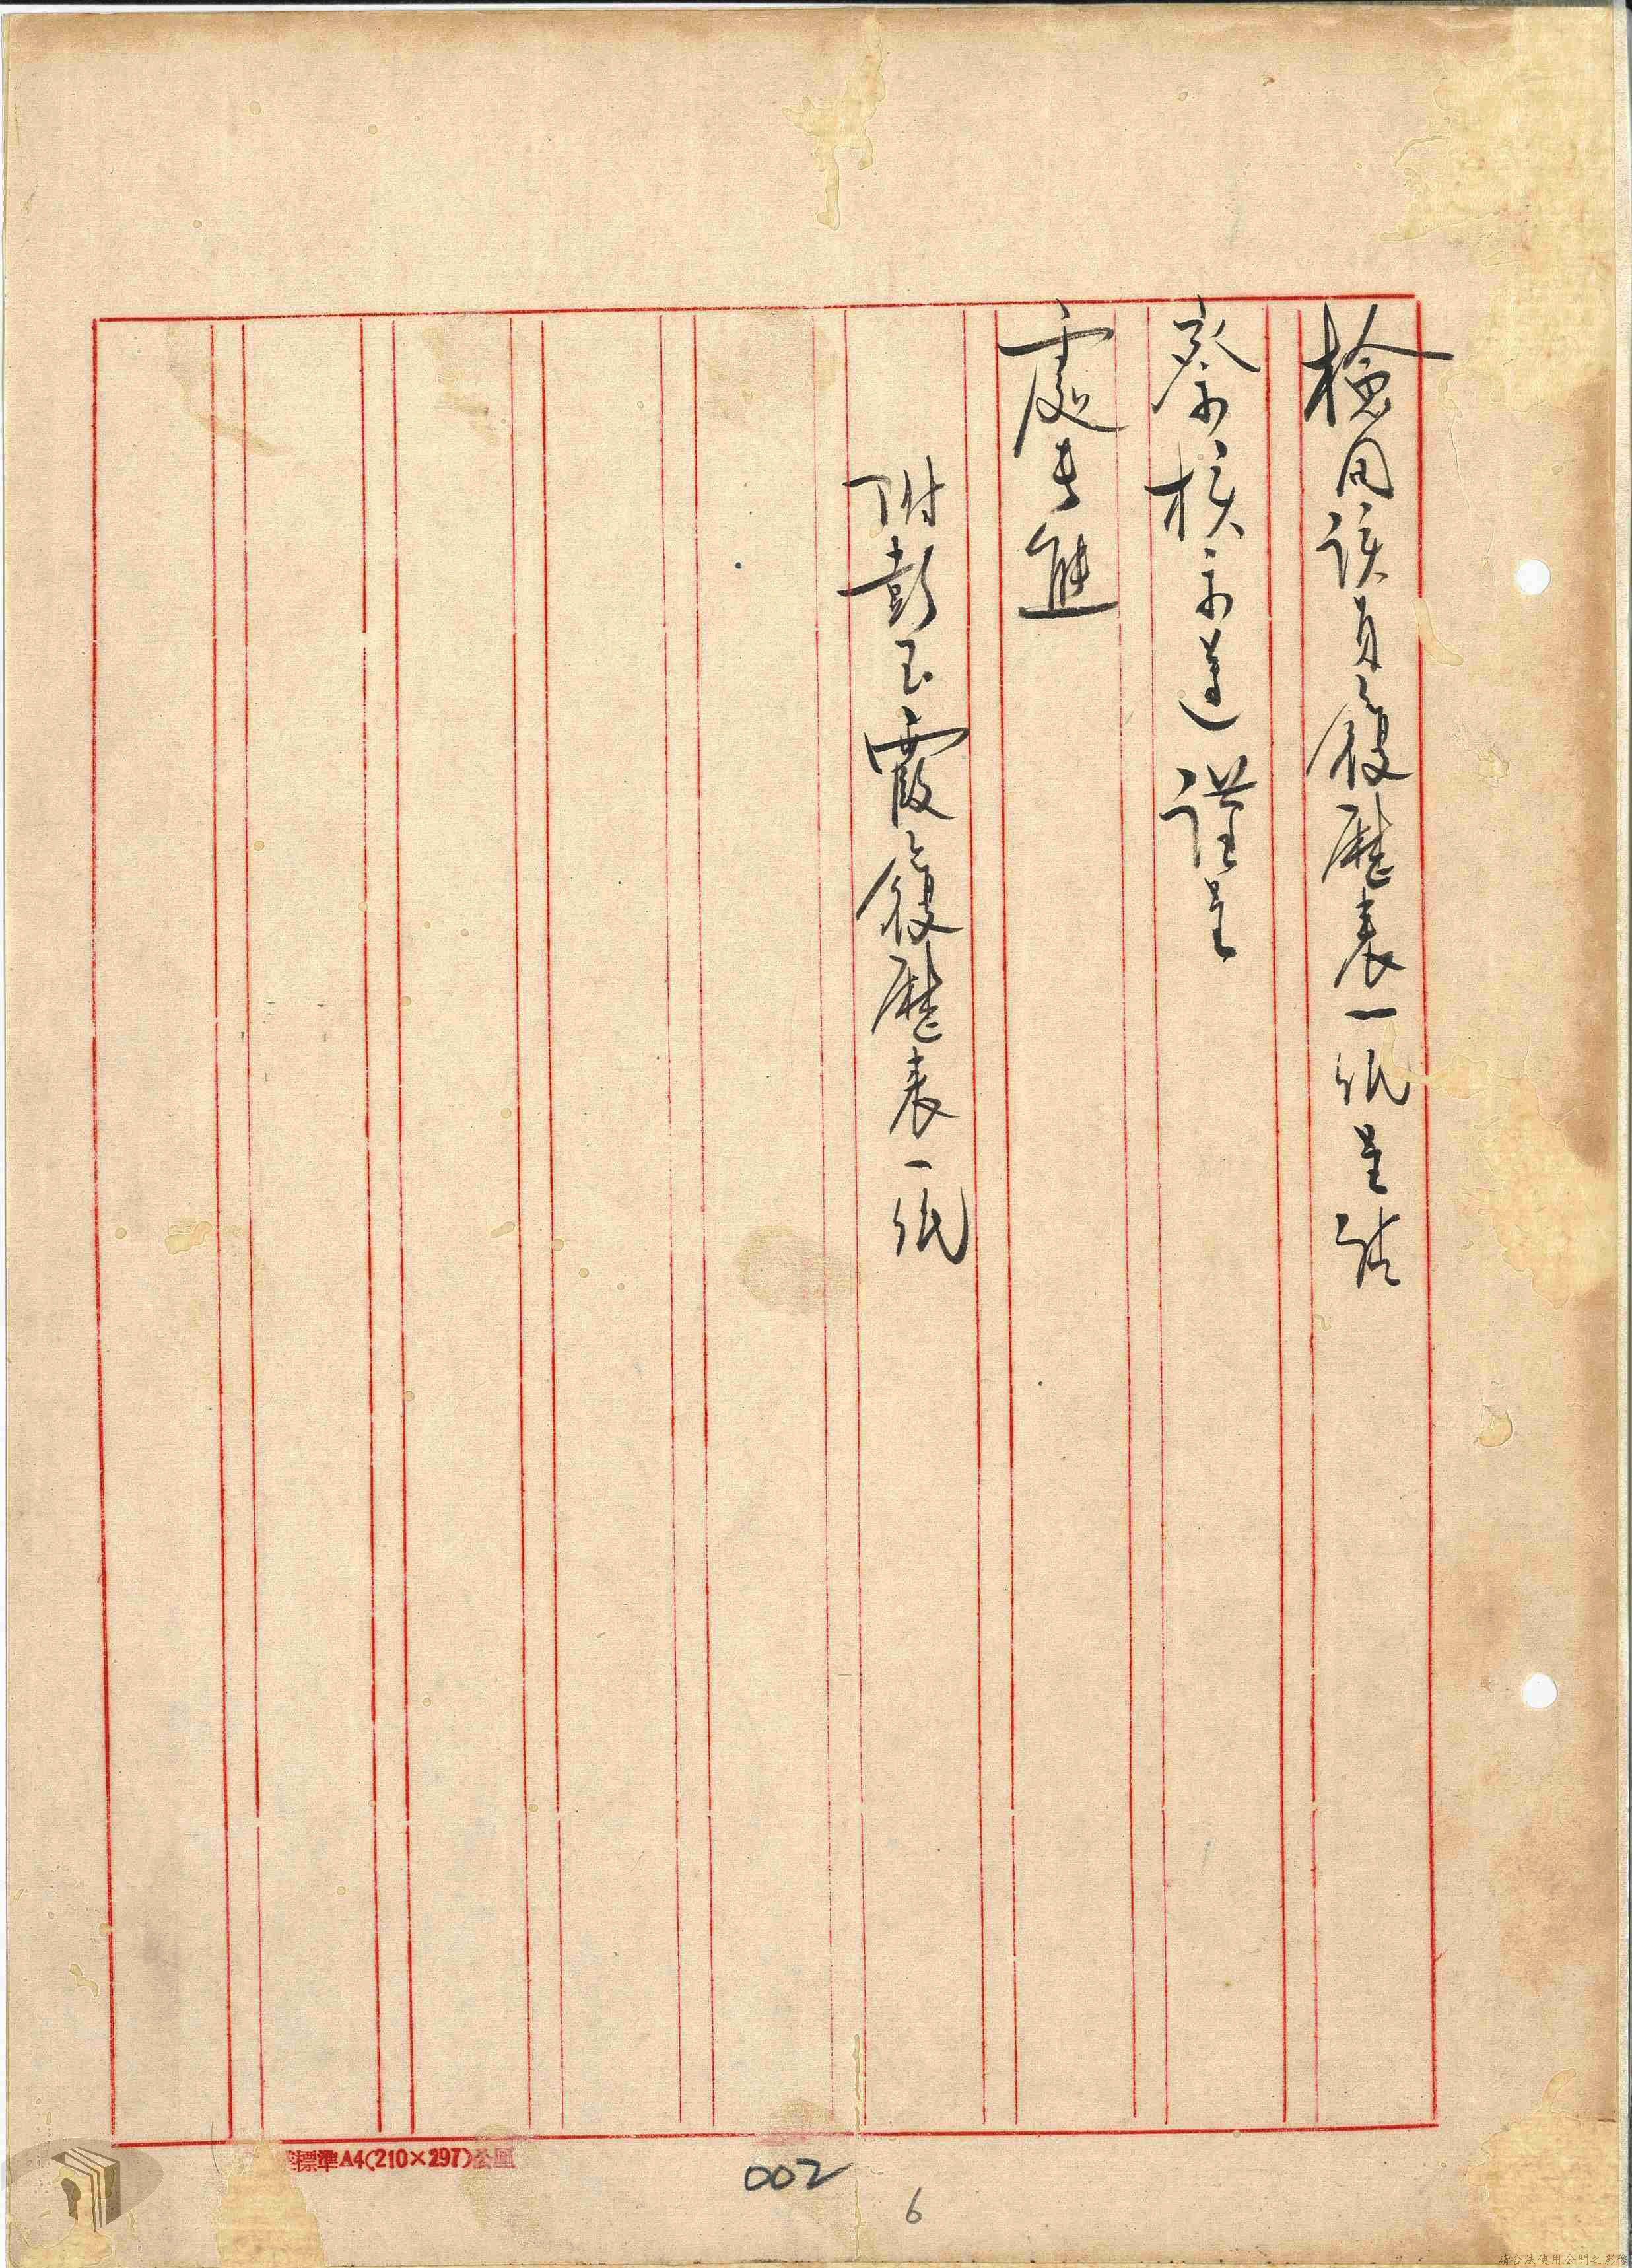 檢同該員履歷表一紙呈請
察閱核示遵謹呈
處長熊
附彭玉霞履歷表一紙
標準A4(210×297)公厘
002
6
請合法使用公開之影像